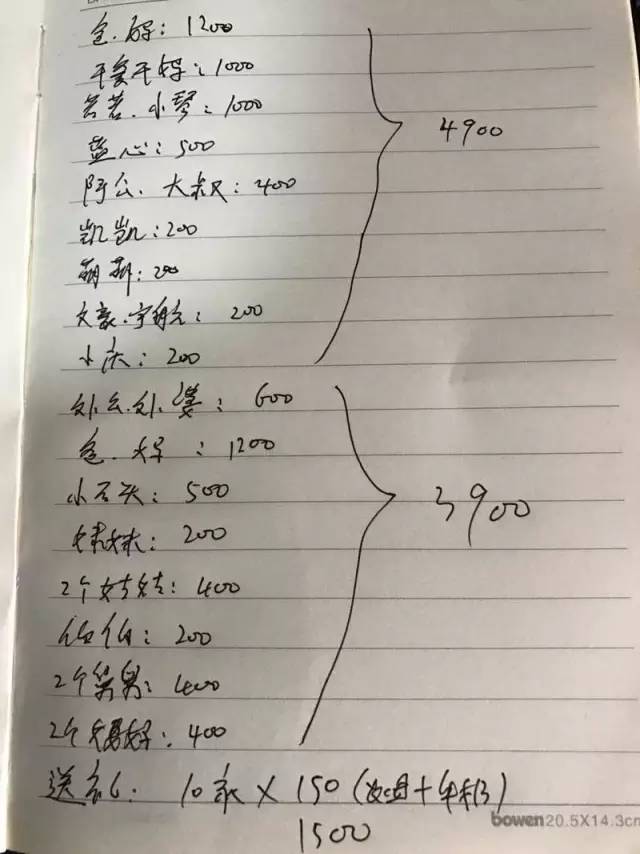 爸.妈：1200
干爹干妈：1000
芸芸.小琴：1000
蓝心：500
阿公.大叔：400
凯凯：200
萌萌：200
文豪.宇航：200
小庆：200
4900
外公.外婆：600
爸.妈：1200
小石头：500
妹妹：200
2个姑姑：400
伯伯：200
2个舅舅：400
2个舅妈：400
3900
送礼：10家×150(
1500
bowen20.5X14.3c